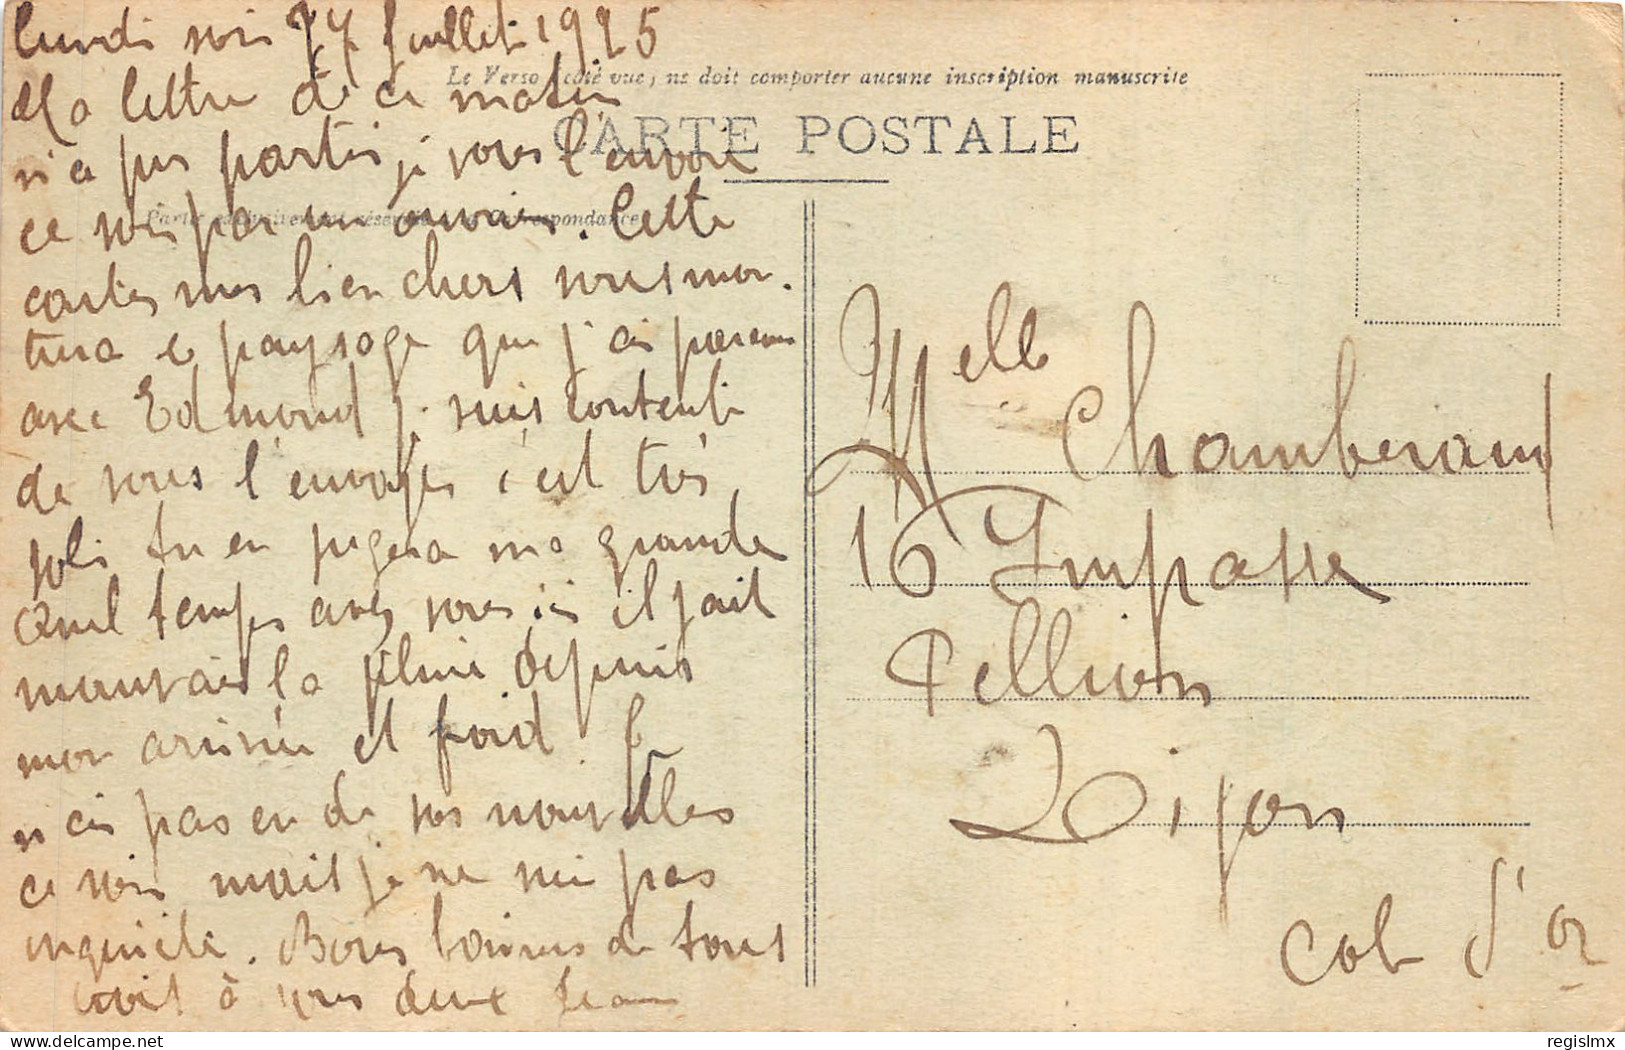 lundi soir 27 Juillet 1925
Ma lettre de ce matin
n'a pas partis je vous l'envoie
ce soir par un mauvais. Cette
cartes mes bien chers vous mon.
trera le paysage que j'ai parcouru
avec Edmond je suis contente
de vous l'envoyer c'est très
joli tu en jugera ma grande
Quel temps avez vous ici il fait
mauvais la pluie depuis
mon arrivée et froid Je
n'ai pas eu de vos nouvelles
ce soir mais je ne suis pas
inquiète. Bons baisers de tous
trois à vous deux
Le Verso (côté vue) ne doit comporter aucune inscription manuscrite
CARTE POSTALE
Partie correspondance
Melle Chamberaud
16 Impasse
Pellion
Dijon
Cote d'or
regislmx
delcampe.net